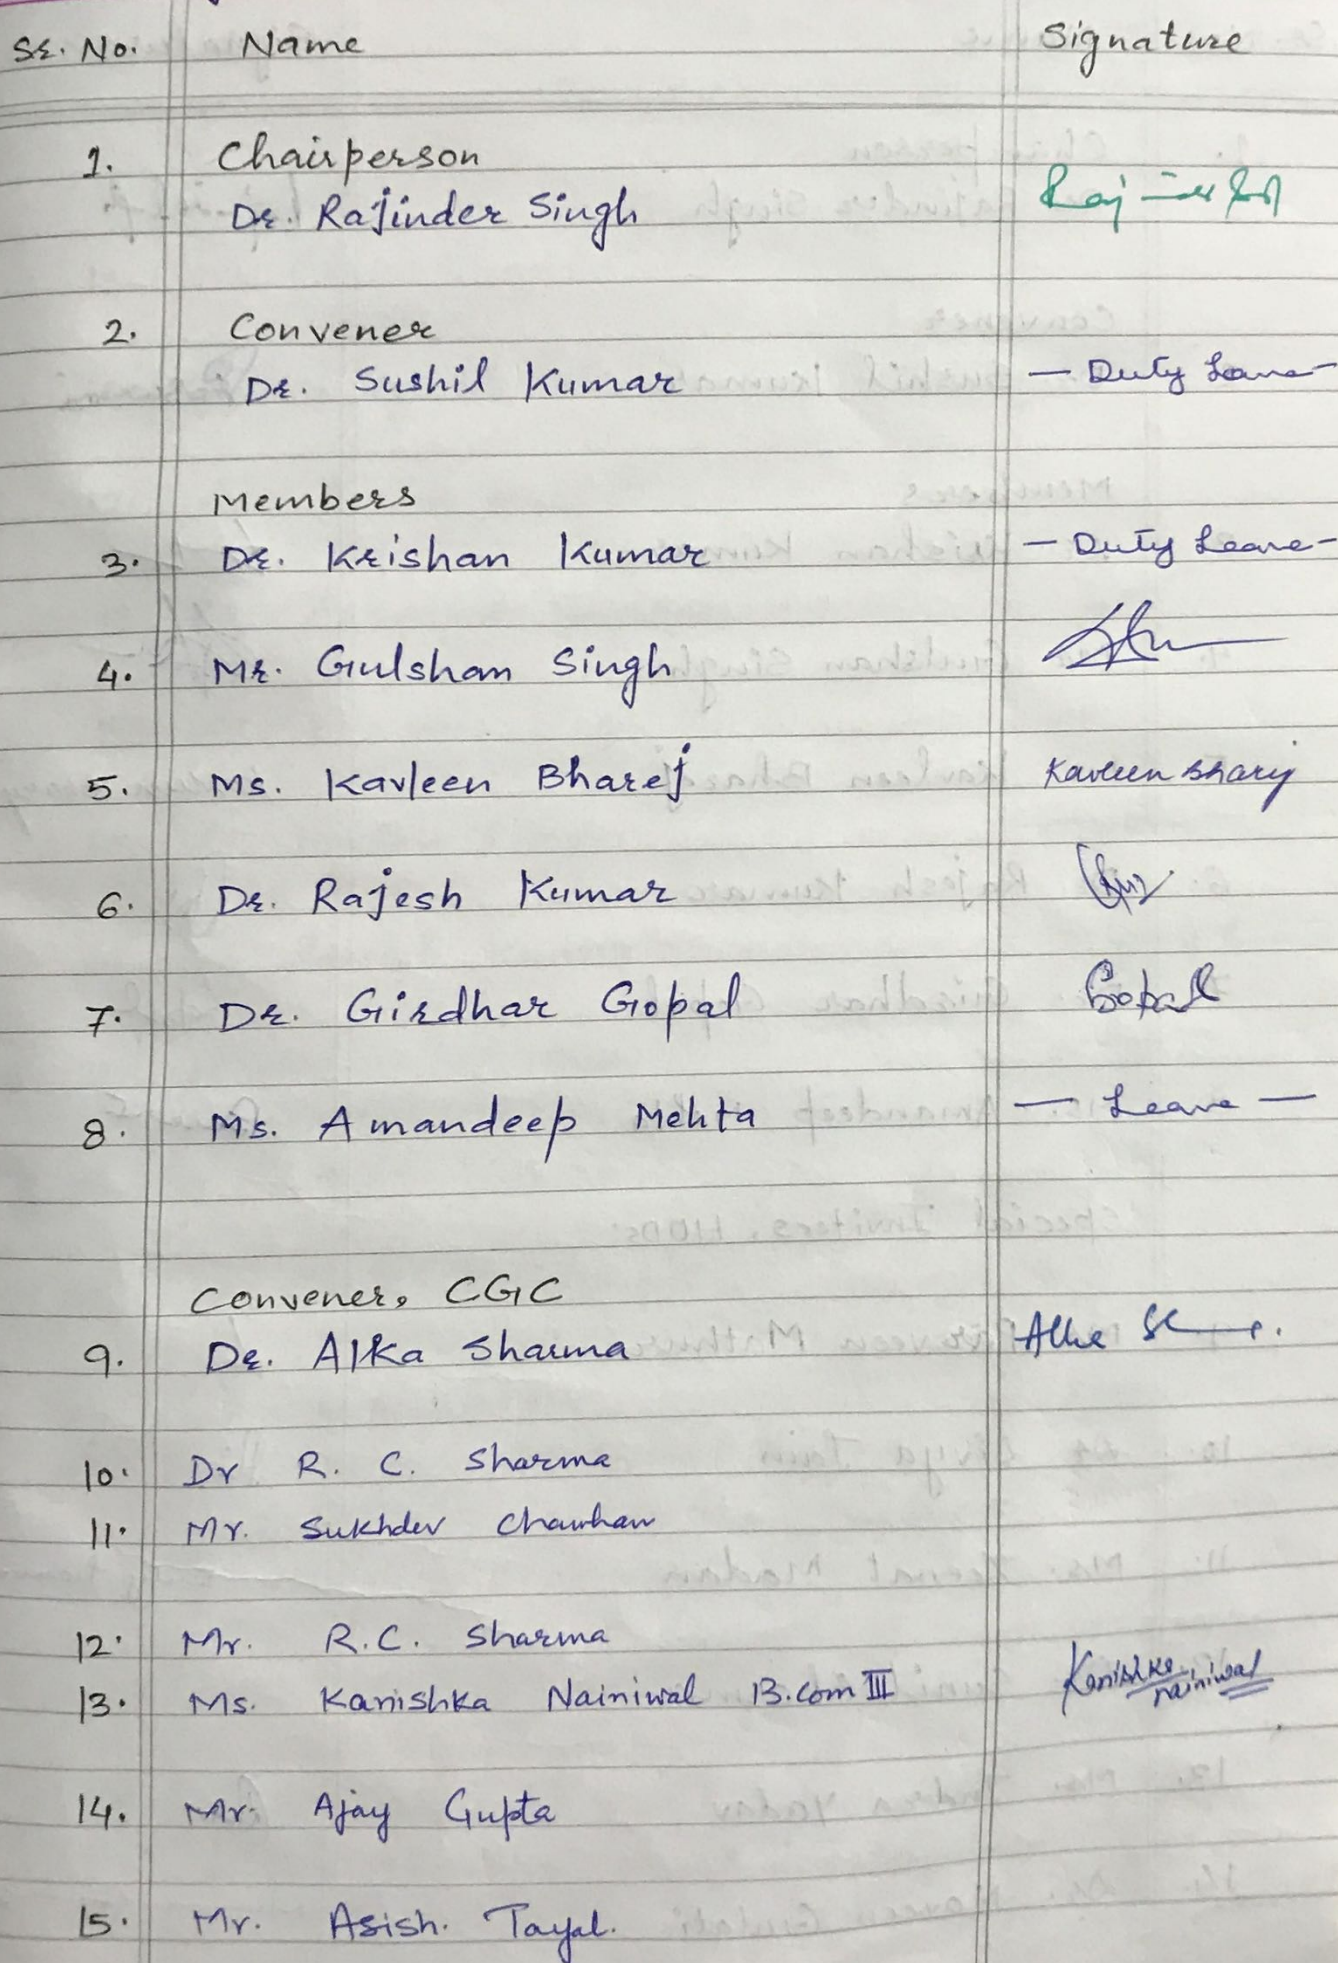 Sr. No. Name Signature
1. Chairperson
Dr. Rajinder Singh
2. Convener
Dr. Sushil Kumar — Duty Leave —
Members
3. Dr. Krishan Kumar — Duty Leave —
4. Mr. Gulshan Singh
5. Ms. Kavleen Bharej Kavleen Bharej
6. Dr. Rajesh Kumar
7. Dr. Girdhar Gopal Gopal
8. Ms. Amandeep Mehta — Leave —
Convener, CGC
9. Dr. Alka Sharma Alka
10. Dr R. C. Sharma
11. Mr. Sukhdev Chauhan
12. Mr. R.C. Sharma
13. Ms. Kanishka Nainiwal B.com III Kanishka Nainiwal
14. Mr. Ajay Gupta
15. Mr. Asish. Tayal.